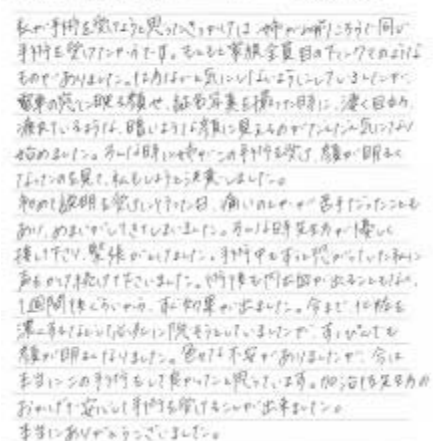 私が手術を受けようと思ったきっかけは、姉が以前こちらで同じ
手術を受けたからです。もともと家族全員目の下にクマのような
ものがありました。仕方ないと気にしないようにしていましたが、
電車の窓に映る顔や、証明写真を撮った時に、凄く目が
疲れているような、暗いような顔に見えるのがだんだん気になり
始めました。そんな時に姉がこの手術を受け、顔が明るく
なったのを見て、私もしようと決意しました。
初めて説明を受けに行った日、痛いのとかが苦手だったことも
あり、めまいがしてきてしまいました。そんな時先生方が優しく
接して下さり、緊張がとれました。手術中もずっと恐がっていた私に
声をかけ続けて下さいました。術後も内出血が出ることもなく、
1週間後くらいから、すぐ効果が出ました。今まで化粧を
濃くするなどして必死に隠そうとしていましたが、すっぴんでも
顔が明るくなりました。色々な不安がありましたが、今は
本当にこの手術をして良かったと思っています。加治佐先生方の
おかげで安心して手術を受けることが出来ました。
本当にありがとうございました。